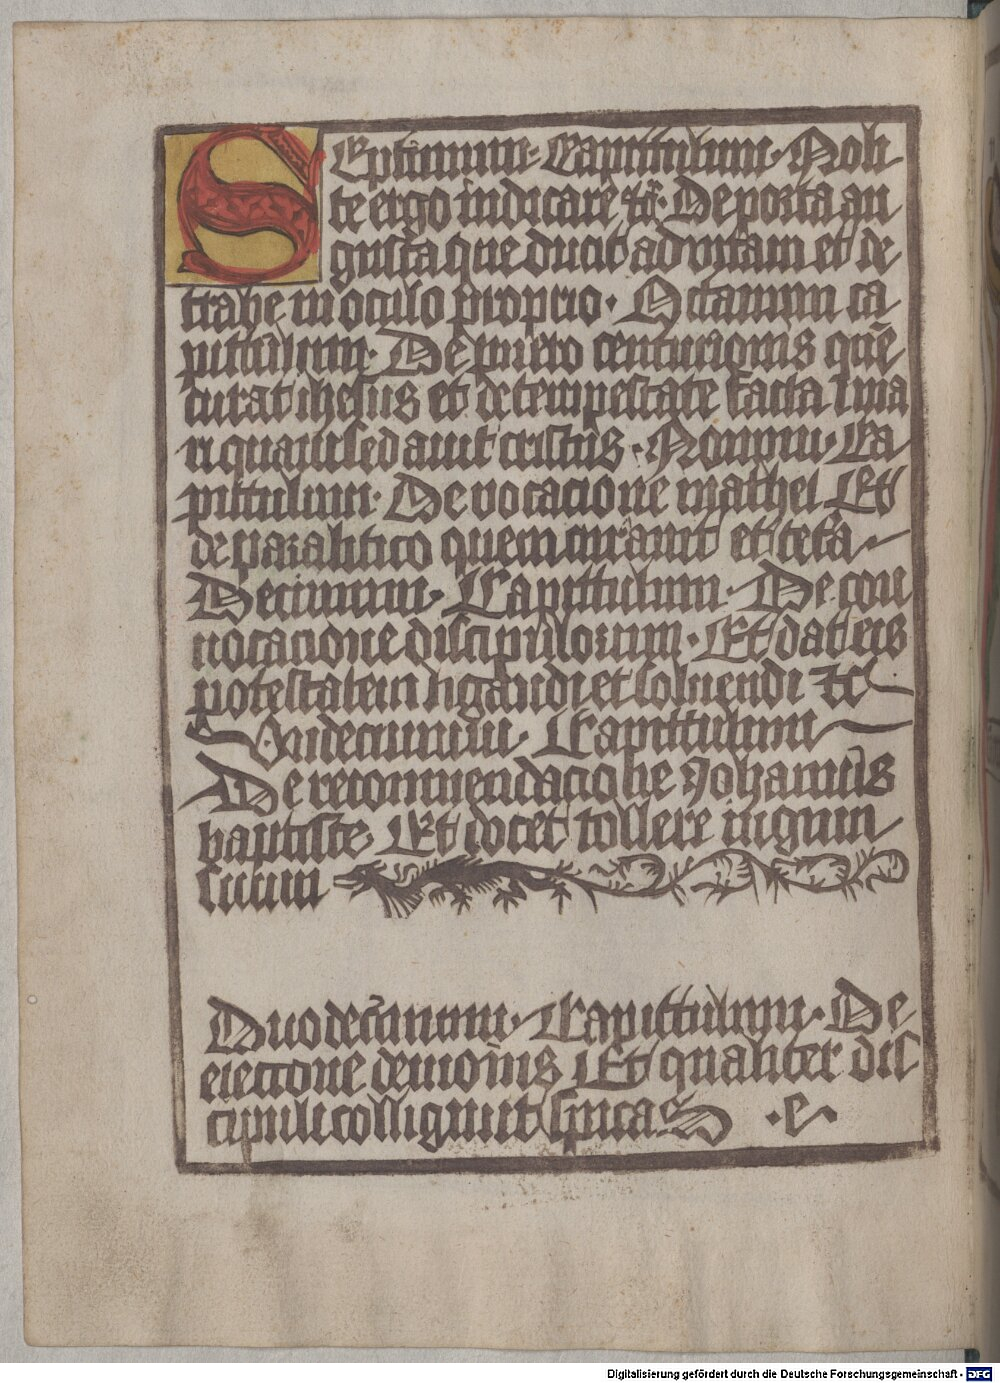 SEptimum Capittulum · Noli
te ergo iudicare ⁊c̄ · De porta an
gusta que ducit ad vitam et de
trabe in oculo proprio · Octauum ca
pittulum · De puero centurionis quē
curat ihesus et de tempestate facta ī ma
ri quam sedauit cristus · Nonum · Ca
pittulum · De vocacione mathei Et
de paralitico quem curauit et cetͣa
Decimum · Capittulum · De con
uocacione discipulorum · Et dat eis
potestatem ligandi et soluendi ⁊c
Vndecimum · Capittulum
De recommendacione Johannis
baptiste Et docet tollere iugum
suum
Duodecīmum · Capittulum · De
eiectione demonīs Et qualiter dis
cipuli colligunt spicas · e ·
Digitalisierung gefördert durch die Deutsche Forschungsgemeinschaft - DFG